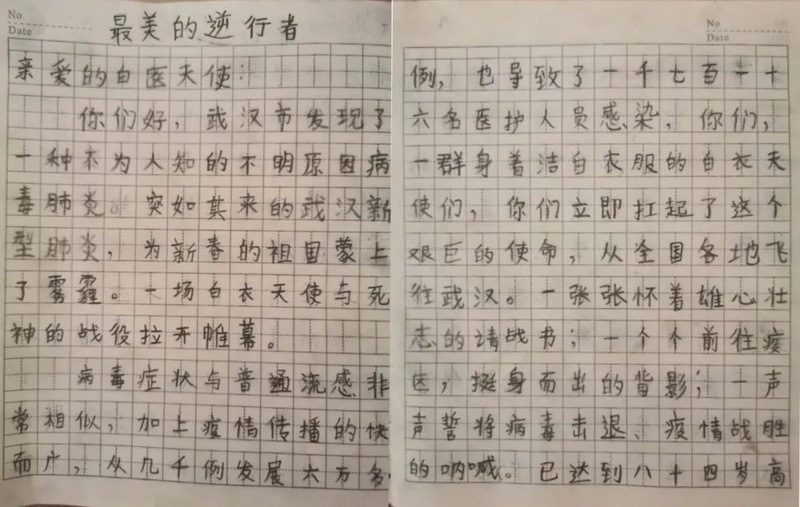 No
Date
最美的逆行者
亲爱的白医天使：
你们好，武汉市发现了
一种不为人知的不明原因病
毒肺炎。突如其来的武汉新
型肺炎，为新春的祖国蒙上
了雾霾。一场白衣天使与死
神的战役拉开帷幕。
病毒症状与普通流感非
常相似，加上疫情传播的快
而广，从几千例发展六万多
No
Date
例，也导致了一千七百一十
六名医护人员感染，你们，
一群身着洁白衣服的白衣天
使们，你们立即扛起了这个
艰巨的使命，从全国各地飞
往武汉。一张张怀着雄心壮
志的请战书；一个个前往疫
区，挺身而出的背影；一声
声誓将病毒击退、疫情战胜
的呐喊。已达到八十四岁高